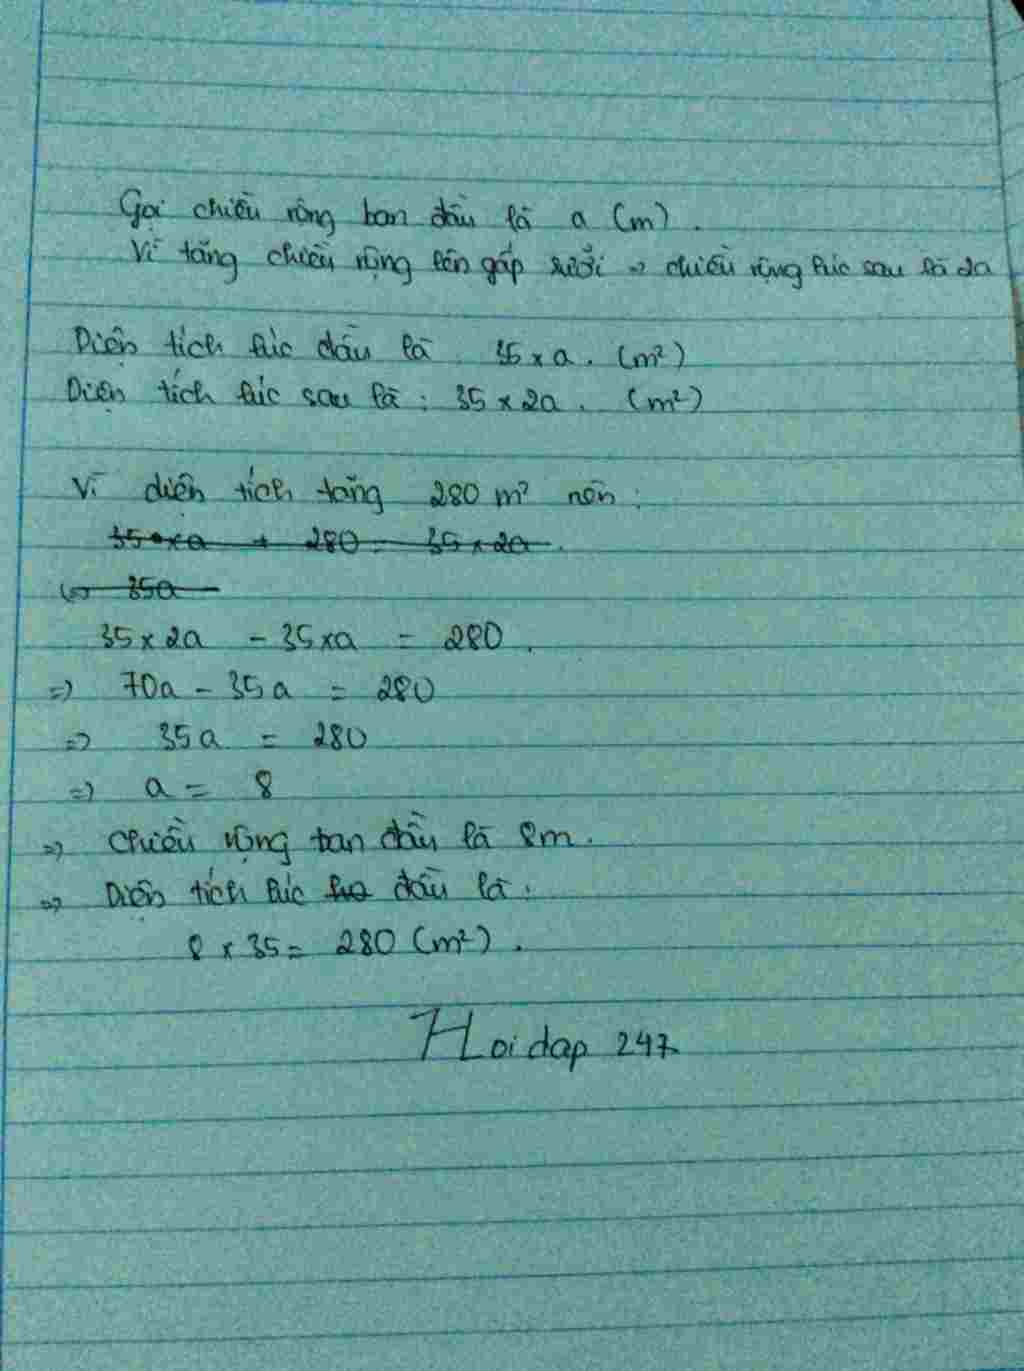 Gọi chiều rộng ban đầu là a (m).
Vì tăng chiều rộng lên gấp rưỡi => chiều rộng lúc sau là 2a
Diện tích lúc đầu là 35 x a. (m²)
Diện tích lúc sau là: 35 x 2a. (m²)
Vì diện tích tăng 280 m² nên:
35 x a + 280 = 35 x 2a.
<=> 35a
35 x 2a - 35 x a = 280.
=> 70a - 35a = 280
=> 35a = 280
=> a = 8
=> Chiều rộng ban đầu là 8m.
=> Diện tích lúc đầu là:
8 x 35 = 280 (m²).
Hoidap 247